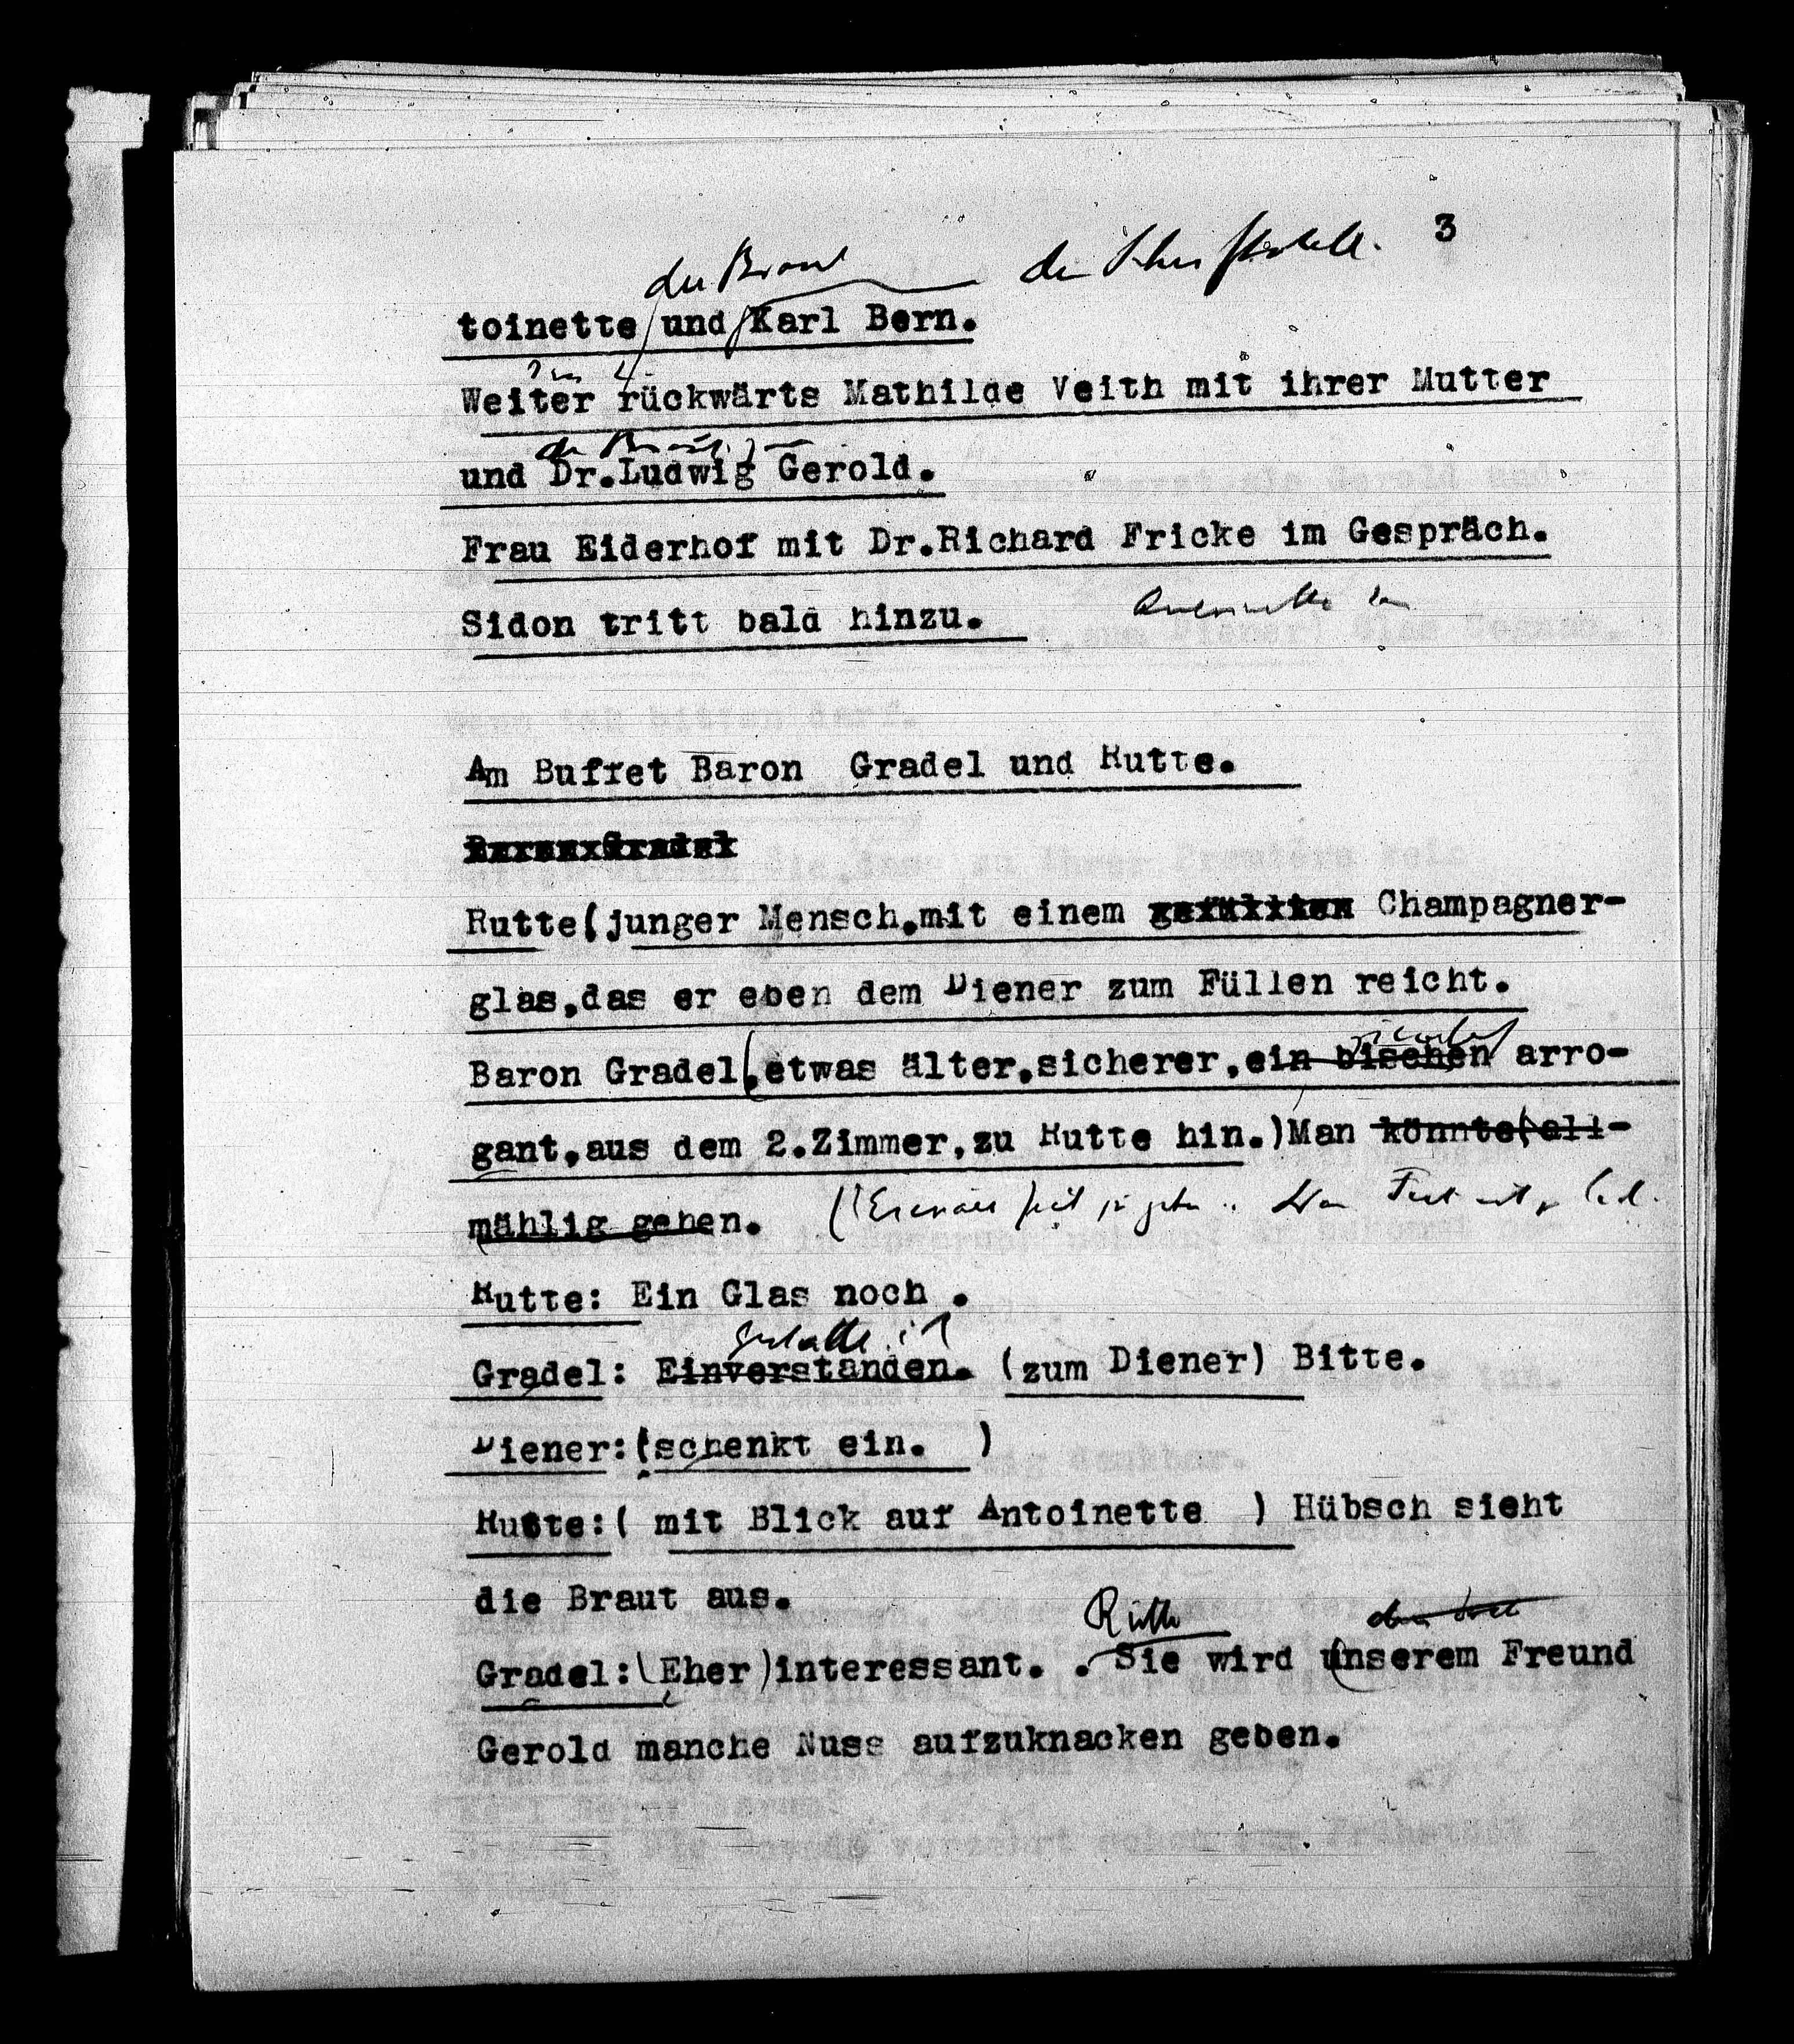 3
der Braut
toinette und Karl Bern.
Weiter rückwärts Mathilde Veith mit ihrer Mutter
und Dr.Ludwig Gerold.
Frau Eiderhof mit Dr.Richard Fricke im Gespräch.
Sidon tritt bald hinzu.
Am Buffet Baron Gradel und Rutte.
Baron Gradel
Rutte(junger Mensch,mit einem gefüllten Champagner-
glas,das er eben dem Diener zum Füllen reicht.
ziemlich
Baron Gradel(,etwas älter,sicherer,ein bischen arro-
gant,aus dem 2.Zimmer,zu Rutte hin.)Man könnte(all-
mählig gehen.
Rutte: Ein Glas noch .
Gradel: Einverstanden. (zum Diener) Bitte.
Diener:(schenkt ein. )
Rutte:( mit Blick auf Antoinette ) Hübsch sieht
die Braut aus.
Gradel:(Eher)interessant. . Sie wird unserem Freund
Gerold manche Nuss aufzuknacken geben.